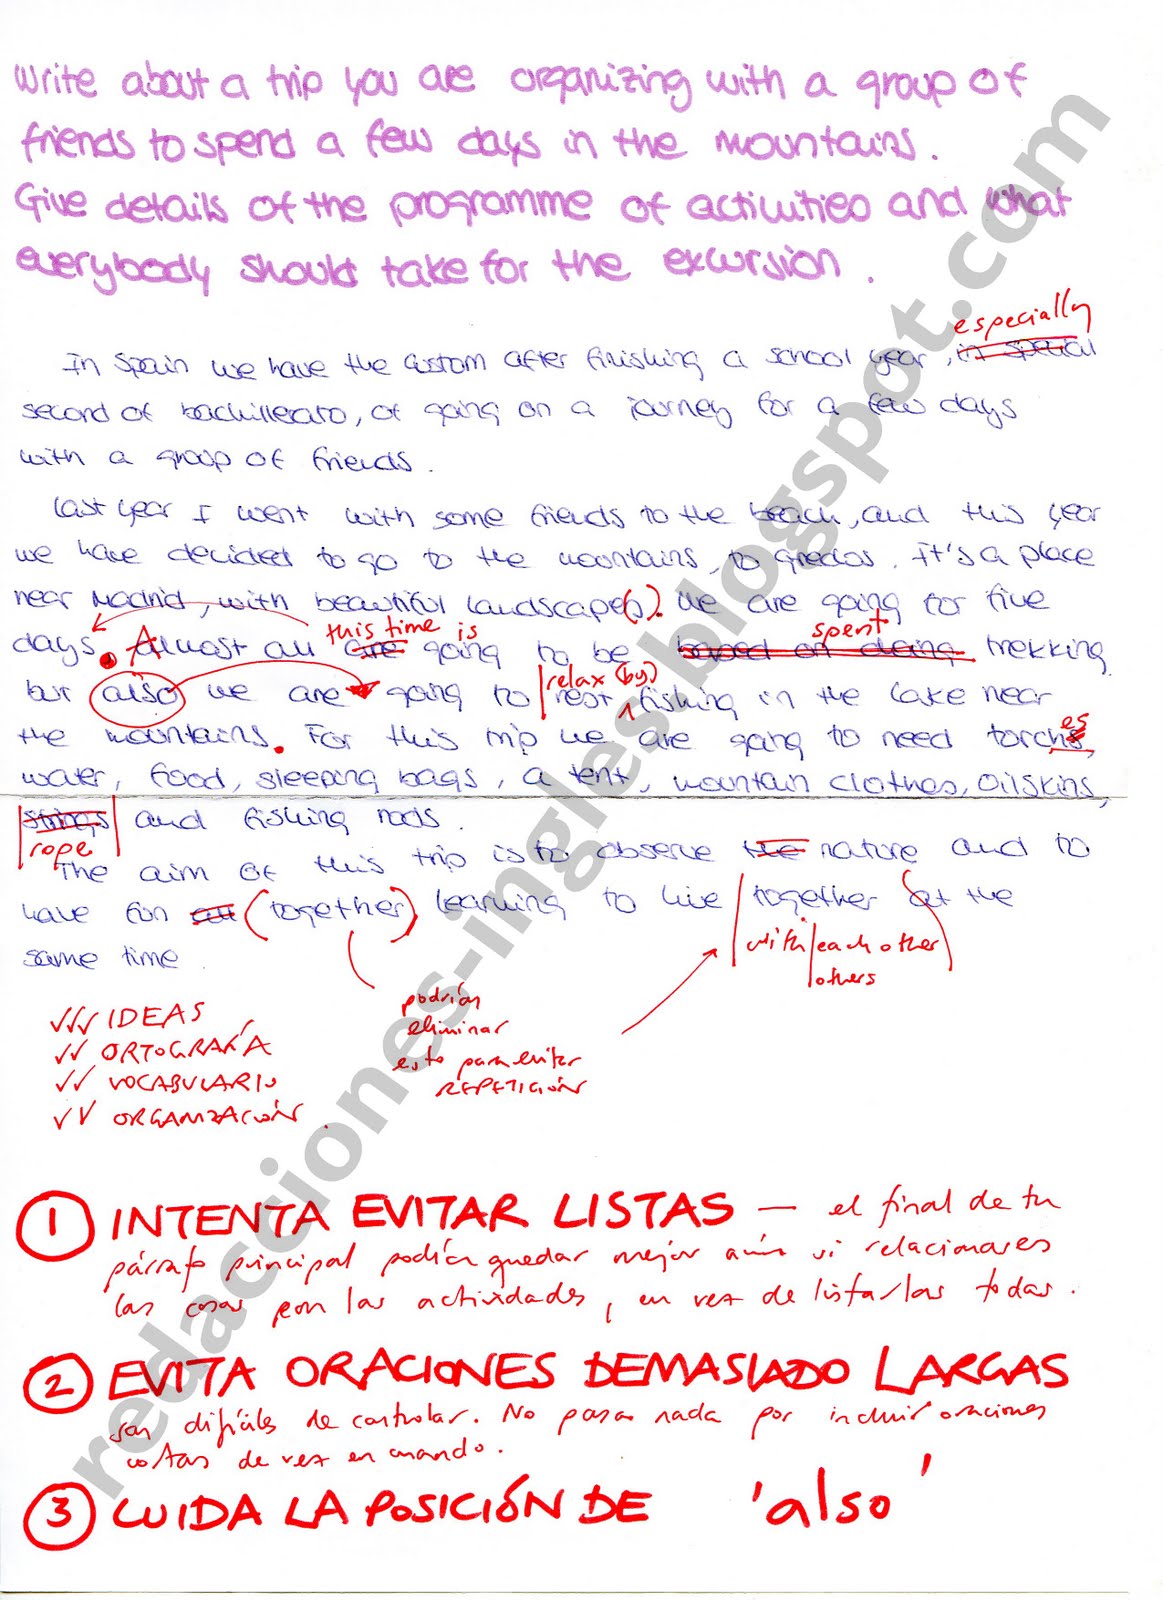 Write about a trip you are organizing with a group of
friends to spend a few days in the mountains.
Give details of the programme of activities and what
everybody should take for the excursion.
especially
In Spain we have the custom after finishing a school year, in special
second of bachillerato, of going on a journey for a few days
with a group of friends.
Last year I went with some friends to the beach, and this year
we have decided to go to the mountains, to Gredos. It's a place
near Madrid, with beautiful landscape(s). We are going for five
this time is spent
days. Almost all are going to be based on doing trekking
relax (by)
but also we are going to rest fishing in the lake near
es
the mountains. For this trip we are going to need torchs,
water, food, sleeping bags, a tent, mountain clothes, oilskins,
strings and fishing rods.
rope
The aim of this trip is to observe the nature and to
have fun all (together) learning to live together at the
with/each other
others
same time.
podrías
eliminar
esto para evitar
REPETICIÓN
✓✓✓ IDEAS
✓✓ ORTOGRAFÍA
✓✓ VOCABULARIO
✓✓ ORGANIZACIÓN.
1 INTENTA EVITAR LISTAS — el final de tu
párrafo principal podría quedar mejor aún si relacionares
las cosas con las actividades, en vez de listarlas todas.
2 EVITA ORACIONES DEMASIADO LARGAS
son difíciles de controlar. No pasa nada por incluir oraciones
cortas de vez en cuando.
3 CUIDA LA POSICIÓN DE 'also'
redacciones-ingles.blogspot.com